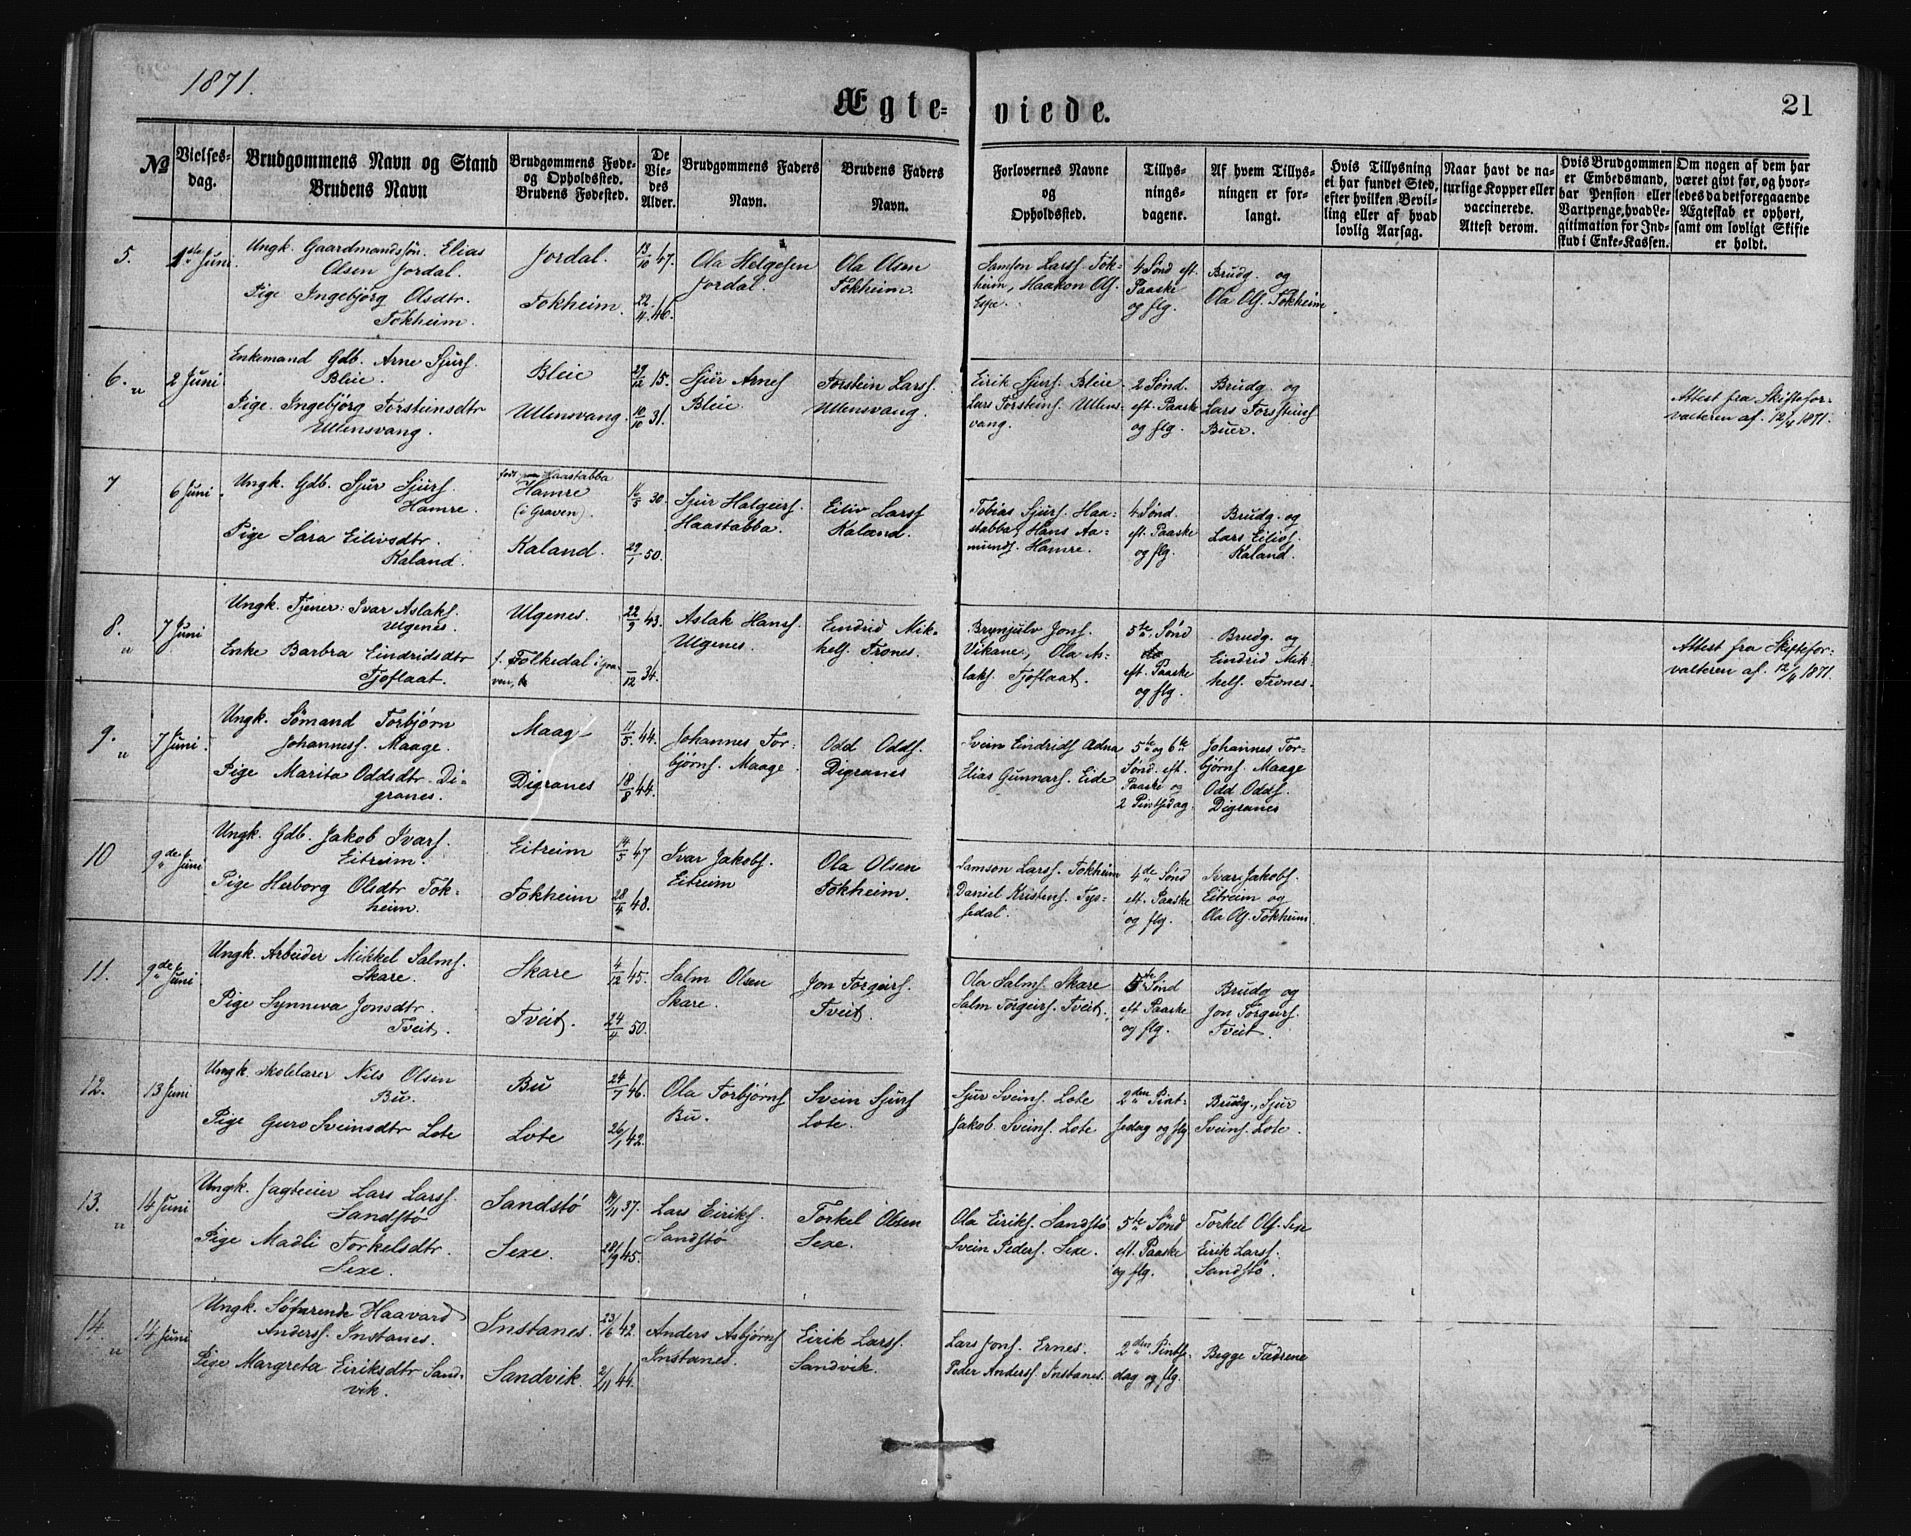 1871.
Ægte-
viede.
21
No
Vielses-
dag.
Brudgommens Navn og Stand
Brudens Navn
Brudgommens Føde-
og Opholdssted.
Brudens Fødested.
De
Vie-
des
Alder.
Brudgommens Faders
Navn.
Brudens Faders
Navn.
Forlovernes Navne
og
Opholdssted.
Tillys-
nings-
dagene.
Af hvem Tillys-
ningen er for-
langt.
Hvis Tillysning
ei har fundet Sted,
efter hvilken Bevil-
ling eller af hvad
lovlig Aarsag.
Naar havt de na-
turlige Kopper eller
vaccinerede.
Attest derom.
Hvis Brudgommen
er Embedsmand,
har Pension eller
Vartpenge, hvad Le-
gitimation for Ind-
skud i Enke-Kassen.
Om nogen af dem har
været givt før, og hvor-
ledes da det foregaaende
Ægteskab er ophørt,
samt om lovligt Skifte
er holdt.
5.
1ste Juni
Ungk. Gaardmandssøn. Elias
Olsen Jordal.
Pige Ingebjørg Olsdtr.
Tokheim.
Jordal.
Tokheim.
13/10 47.
22/4 46.
Ola Helgesen
Jordal.
Ola Olsen
Tokheim.
Samson Larss. Tok-
heim, Haakon Ols.
Espe.
4 Sønd eft.
Paaske
og flg.
Brudg. og
Ola Ols. Tokheim
6.
2 Juni
Enkemand Gdb. Arne Sjurs.
Bleie.
Pige. Ingebjørg Torsteinsdtr
Ullensvang.
Bleie
Ullensvang
29/12 15.
10/10 31.
Sjur Arnes
Bleie
Torstein Larss.
Ullensvang.
Eirik Sjurs. Bleie
Lars Torsteins. Ullens-
vang.
2 Sønd.
eft. Paaske
og flg.
Brudg. og
Lars Torsteins
Buer.
Attest fra Skiftefor-
valteren af. 12/4 1871.
7
6 Juni
Ungk. Gdb. Sjur Sjurs.
Hamre.
Pige Sara Eilivsdtr.
Kaland.
født Haastabba
Hamre
(i Graven).
Kaland.
16/5 30.
29/1 50.
Sjur Halgeirs.
Haastabba.
Eiliv Larss
Kaland.
Tobias Sjurs. Haa-
stabba, Hans Aa-
munds. Hamre.
4 Sønd.
eft. Paaske
og flg.
Brudg. og
Lars Eilivs.
Kaland.
8.
7 Juni
Ungk. Tjener: Ivar Aslaks.
Ulgenes.
Enke Barbra Eindridsdtr
Tjoflaat.
Ulgenes.
f. Folkedal i Gra-
ven,
22/9 43.
/12 34.
Aslak Hanss.
Ulgenes.
Eindrid Mik-
kels. Trones.
Brynjulv Jons.
Vikane, Ola As-
laks. Tjoflaat.
5te Sønd
eft. Paaske
og flg.
Brudg. og
Eindrid Mik-
kels. Trones.
Attest fra Skiftefor-
valteren af. 12/4 1871.
9.
7 Juni.
Ungk. Sømand Torbjørn
Johanness. Maage.
Pige Marita Oddsdtr. Di-
granes.
Maage
Digranes
11/5 44.
18/8 44.
Johannes Tor-
bjørns. Maage.
Odd Odds.
Digranes
Svein Eindrids Adna
Elias Gunnars. Eide
5te og 6te
Sønd. eft.
Paaske og
2 Pintsedag.
Johannes Tor-
bjørns. Maage
Odd Odds.
Digranes
10
9de Juni
Ungk. Gdb. Jakob Ivars.
Eitreim.
Pige Herborg Olsdtr Tok-
heim.
Eitreim
Tokheim
14/5 47
28/4 48.
Ivar Jakobs.
Eitreim
Ola Olsen
Tokheim.
Samson Larss. Tokheim
Daniel Kristens. Tys-
sedal.
4de Sønd
eft. Paaske
og flg.
Ivar Jakobs.
Eitreim og
Ola Ols. Tokheim
11.
9de Juni
Ungk. Arbeider Mikkel Salms.
Skare.
Pige Synneva Jonsdtr.
Tveit.
Skare
Tveit.
4/12 45.
24/4 50.
Salm Olsen
Skare.
Jon Torgeirs.
Tveit.
Ola Salms. Skare
Salm Torgeirs. Tveit.
5te Sønd
eft Paaske
og flg.
Brudg og
Jon Torgeirs.
Tveit.
12.
13 Juni
Ungk. skolelærer Nils Olsen
Bu.
Pige Guro Sveinsdtr Lote
Bu
Lote
24/7 46.
26/1 42.
Ola Torbjørns
Bu.
Svein Sjurs
Lote.
Sjur Sveins. Lote
Jakob. Sveins. Lote
2den Pint-
sedag og flg
Brudg., Sjur
Sveins. Lote.
13.
14 Juni
Ungk. Jagteier Lars Larss.
Sandstø
Pige Madli Torkelsdtr.
Sexe.
Sandstø
Sexe.
14/11 37.
28/9 45.
Lars Eiriks.
Sandstø
Torkel Olsen
Sexe.
Ola Eiriks. Sandstø
Svein Peders. Sexe.
5te Sønd
eft. Paaske
og flg.
Torkel Ols. Sexe
Eirik Larss.
Sandstø.
14.
14 Juni
Ungk. Søfarende Haavard
Anderss. Instanes.
Pige Margreta Eiriksdtr Sand-
vik.
Instanes.
Sandvik.
23/6 42.
2/11 44.
Anders Asbjørns
Instanes.
Eirik Larss.
Sandvik.
Lars Jons. Ernes.
Peder Anderss. Instanes.
2den Pintse-
dag og flg.
Begge Fædrene